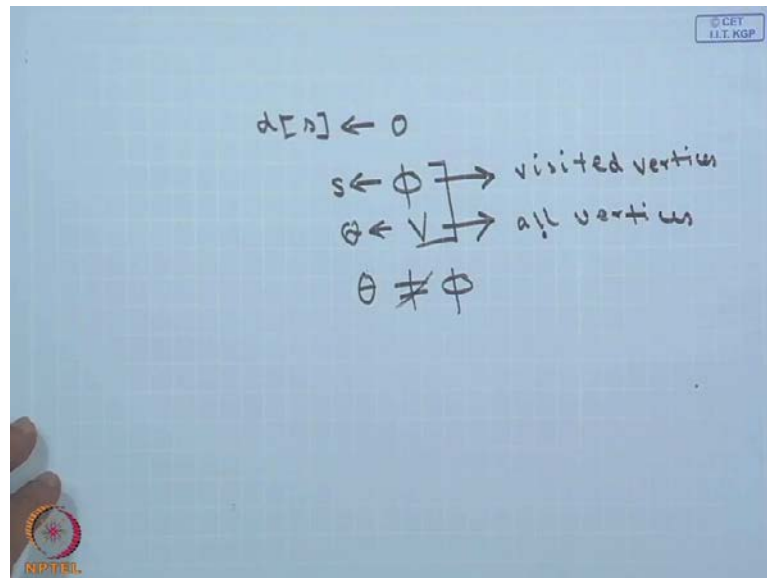 © CET
I.I.T. KGP
d[s] ← 0
s ← ϕ → visited vertices
θ ← V → all vertices
θ ≠ ϕ
NPTEL